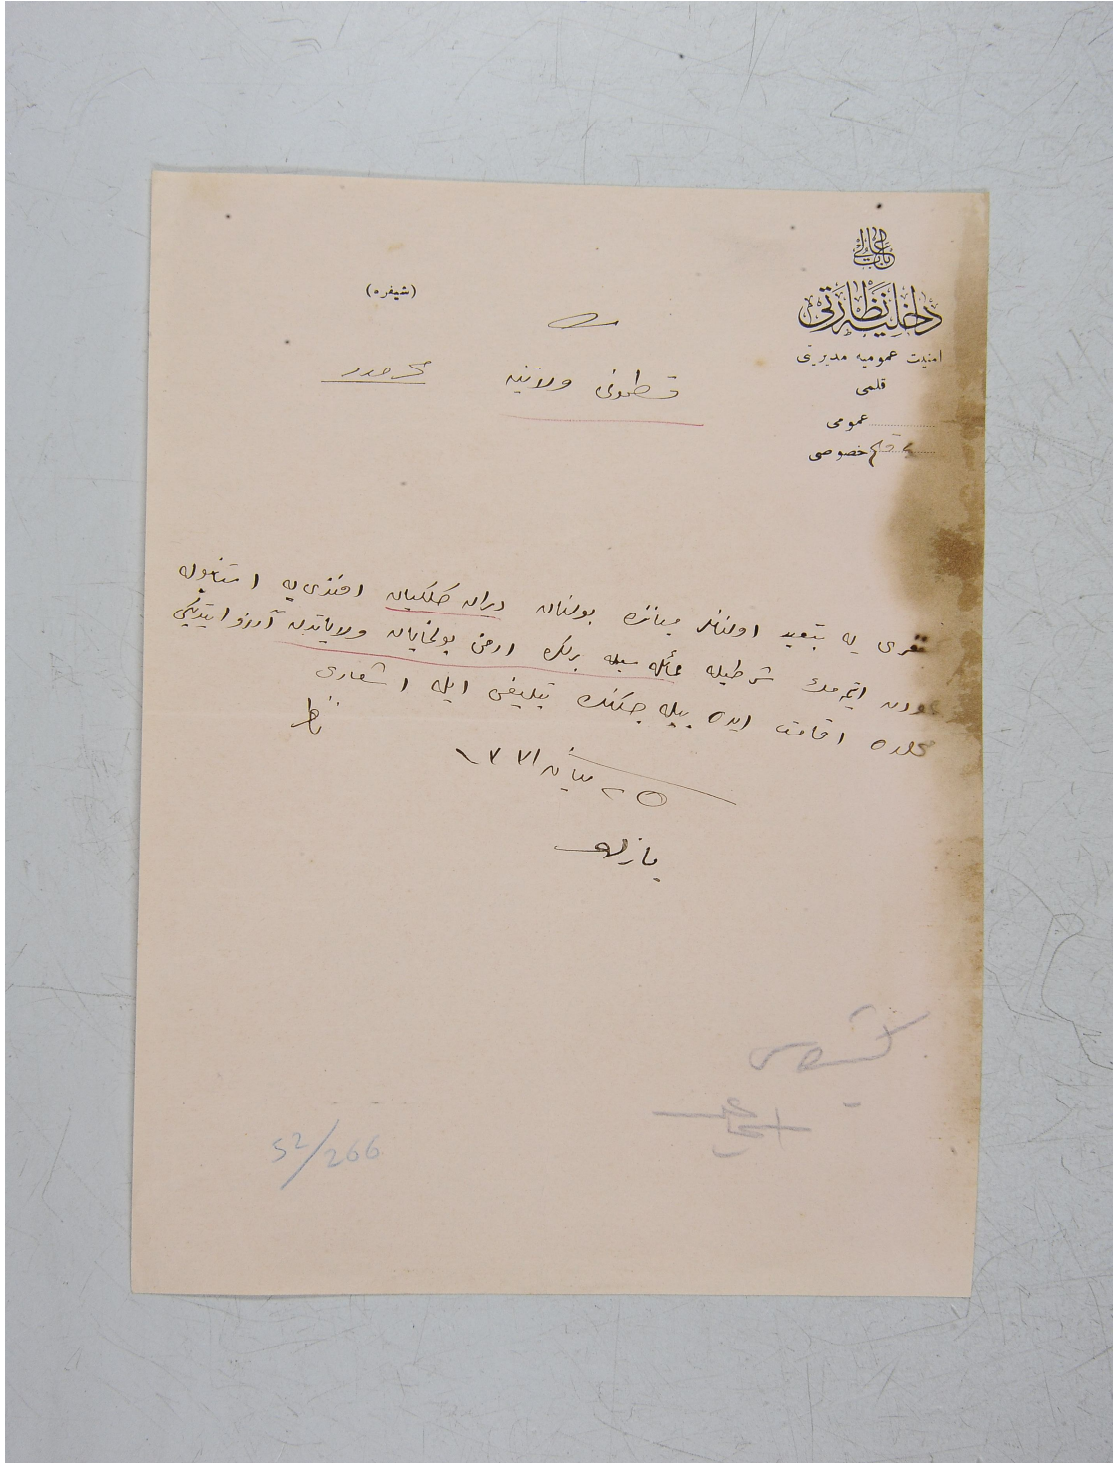 باب عالی
داخلیه نظارتی
امنیت عمومیه مدیریتی
قلمی
عمومی
خصوصی
(شیفره)
قسطمونی ولایتنه
محرمدر
چنغری یه تبعید اولنانلر میاننده بولنان دیران کلکیان افندی یه استانبوله
عودت ایتمه مك شرطیله عائله سیله برلکده ارمنی بولنمایان ولایاتدن آرزو ایتدیکی
محلده اقامت ایده بیله جکنك تبلیغی ایله اشعاری
ناظر
٢٥ نیسان ١٣٣١
یازلدی
52/266